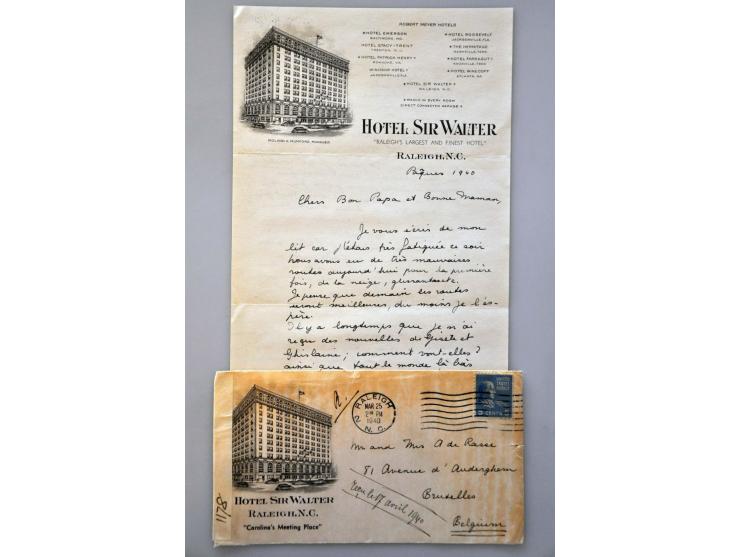 ROBERT MEYER HOTELS
HOTEL EMERSON
BALTIMORE, MD.
HOTEL STACY-TRENT
TRENTON, N.J.
HOTEL PATRICK HENRY
ROANOKE, VA.
WINDSOR HOTEL
JACKSONVILLE, FLA.
HOTEL ROOSEVELT
JACKSONVILLE, FLA.
THE HERMITAGE
NASHVILLE, TENN.
HOTEL FARRAGUT
KNOXVILLE, TENN.
HOTEL WINECOFF
ATLANTA, GA.
HOTEL SIR WALTER
RALEIGH, N.C.
RADIO IN EVERY ROOM
DIRECT CONNECTED GARAGE
ROLAND A. MUMFORD, MANAGER
HOTEL SIR WALTER
"RALEIGH'S LARGEST AND FINEST HOTEL"
RALEIGH, N.C.
Pâques 1940
Chers Bon Papa et Bonne Maman,
Je vous écris de mon
lit car j'étais très fatiguée ce soir
nous avons eu de très mauvaises
routes aujourd'hui pour la première
fois, de la neige,
Je pense que demain les routes
seront meilleures, du moins je l'es-
père.
Il y a longtemps que je n'ai
reçu des nouvelles de Gisele et
Ghislaine; comment vont-elles?
ainsi que tout le monde là bas
RALEIGH
MAR 25
2 PM
1940
N.C.
2
UNITED STATES POSTAGE
CENTS
Mr and Mrs A de Rasse
81 Avenue d'Auderghem
Bruxelles
Belgium
Reçu le 17 avril 1940
1178
HOTEL SIR WALTER
RALEIGH, N.C.
"Carolina's Meeting Place"